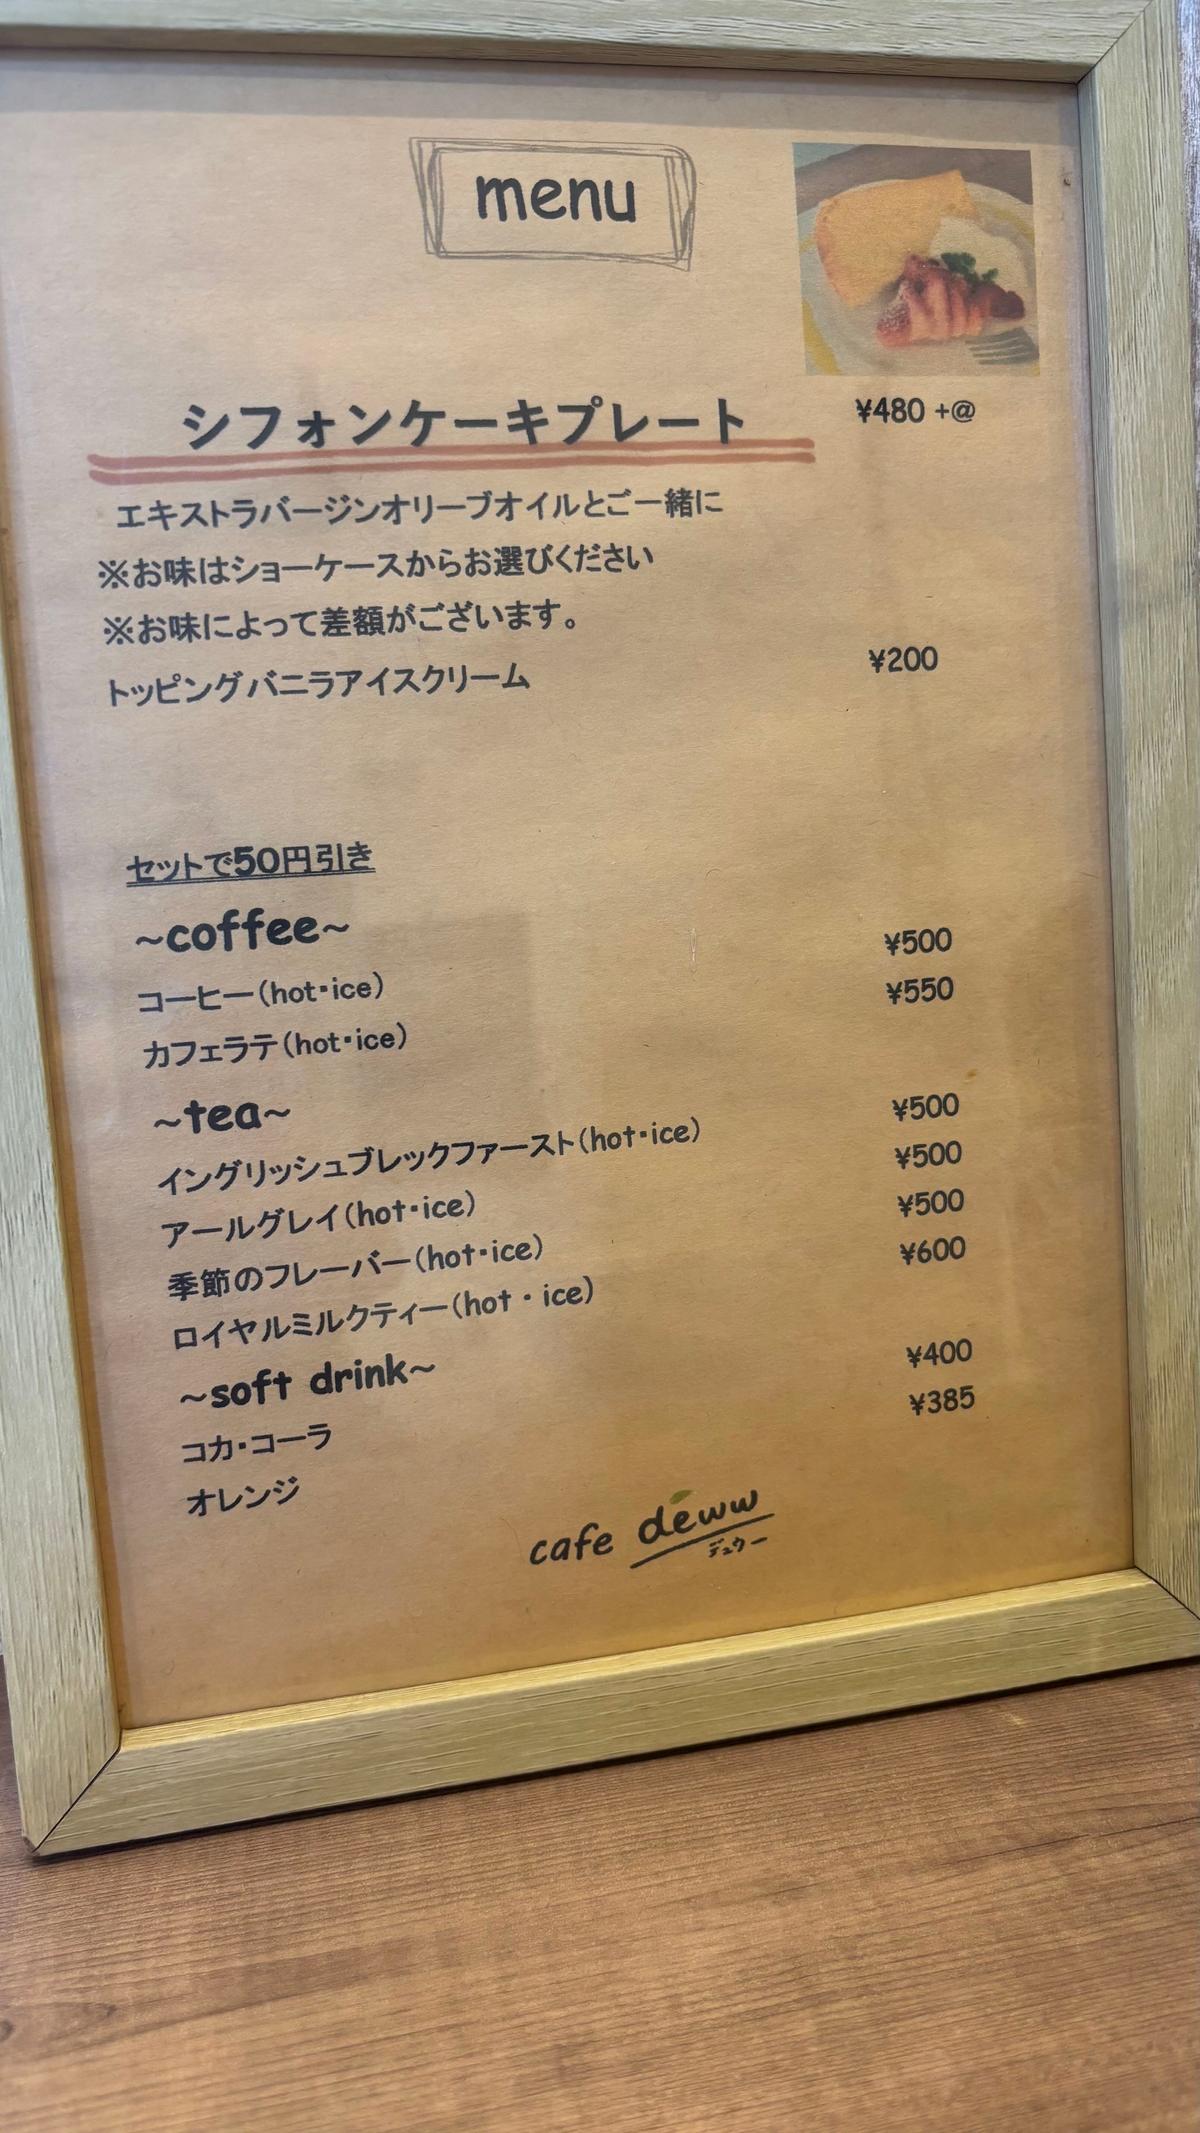 menu
シフォンケーキプレート ¥480 +@
エキストラバージンオリーブオイルとご一緒に
※お味はショーケースからお選びください
※お味によって差額がございます。
トッピングバニラアイスクリーム ¥200
セットで50円引き
~coffee~
コーヒー(hot・ice) ¥500
カフェラテ(hot・ice) ¥550
~tea~
イングリッシュブレックファースト(hot・ice) ¥500
アールグレイ(hot・ice) ¥500
季節のフレーバー(hot・ice) ¥500
ロイヤルミルクティー(hot・ice) ¥600
~soft drink~
コカ・コーラ ¥400
オレンジ ¥385
cafe deww
デュウー